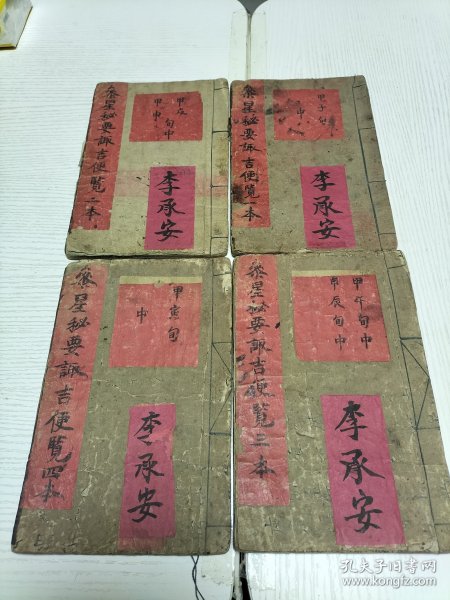 叅星秘要諏吉便覧二本
甲戌旬中
甲申
李承安
叅星秘要諏吉便覧一本
甲子旬
中
李承安
叅星秘要諏吉便覧四本
甲寅旬
中
李承安
叅星秘要諏吉便覧三本
甲午旬中
甲辰旬中
李承安
孔夫子旧书网